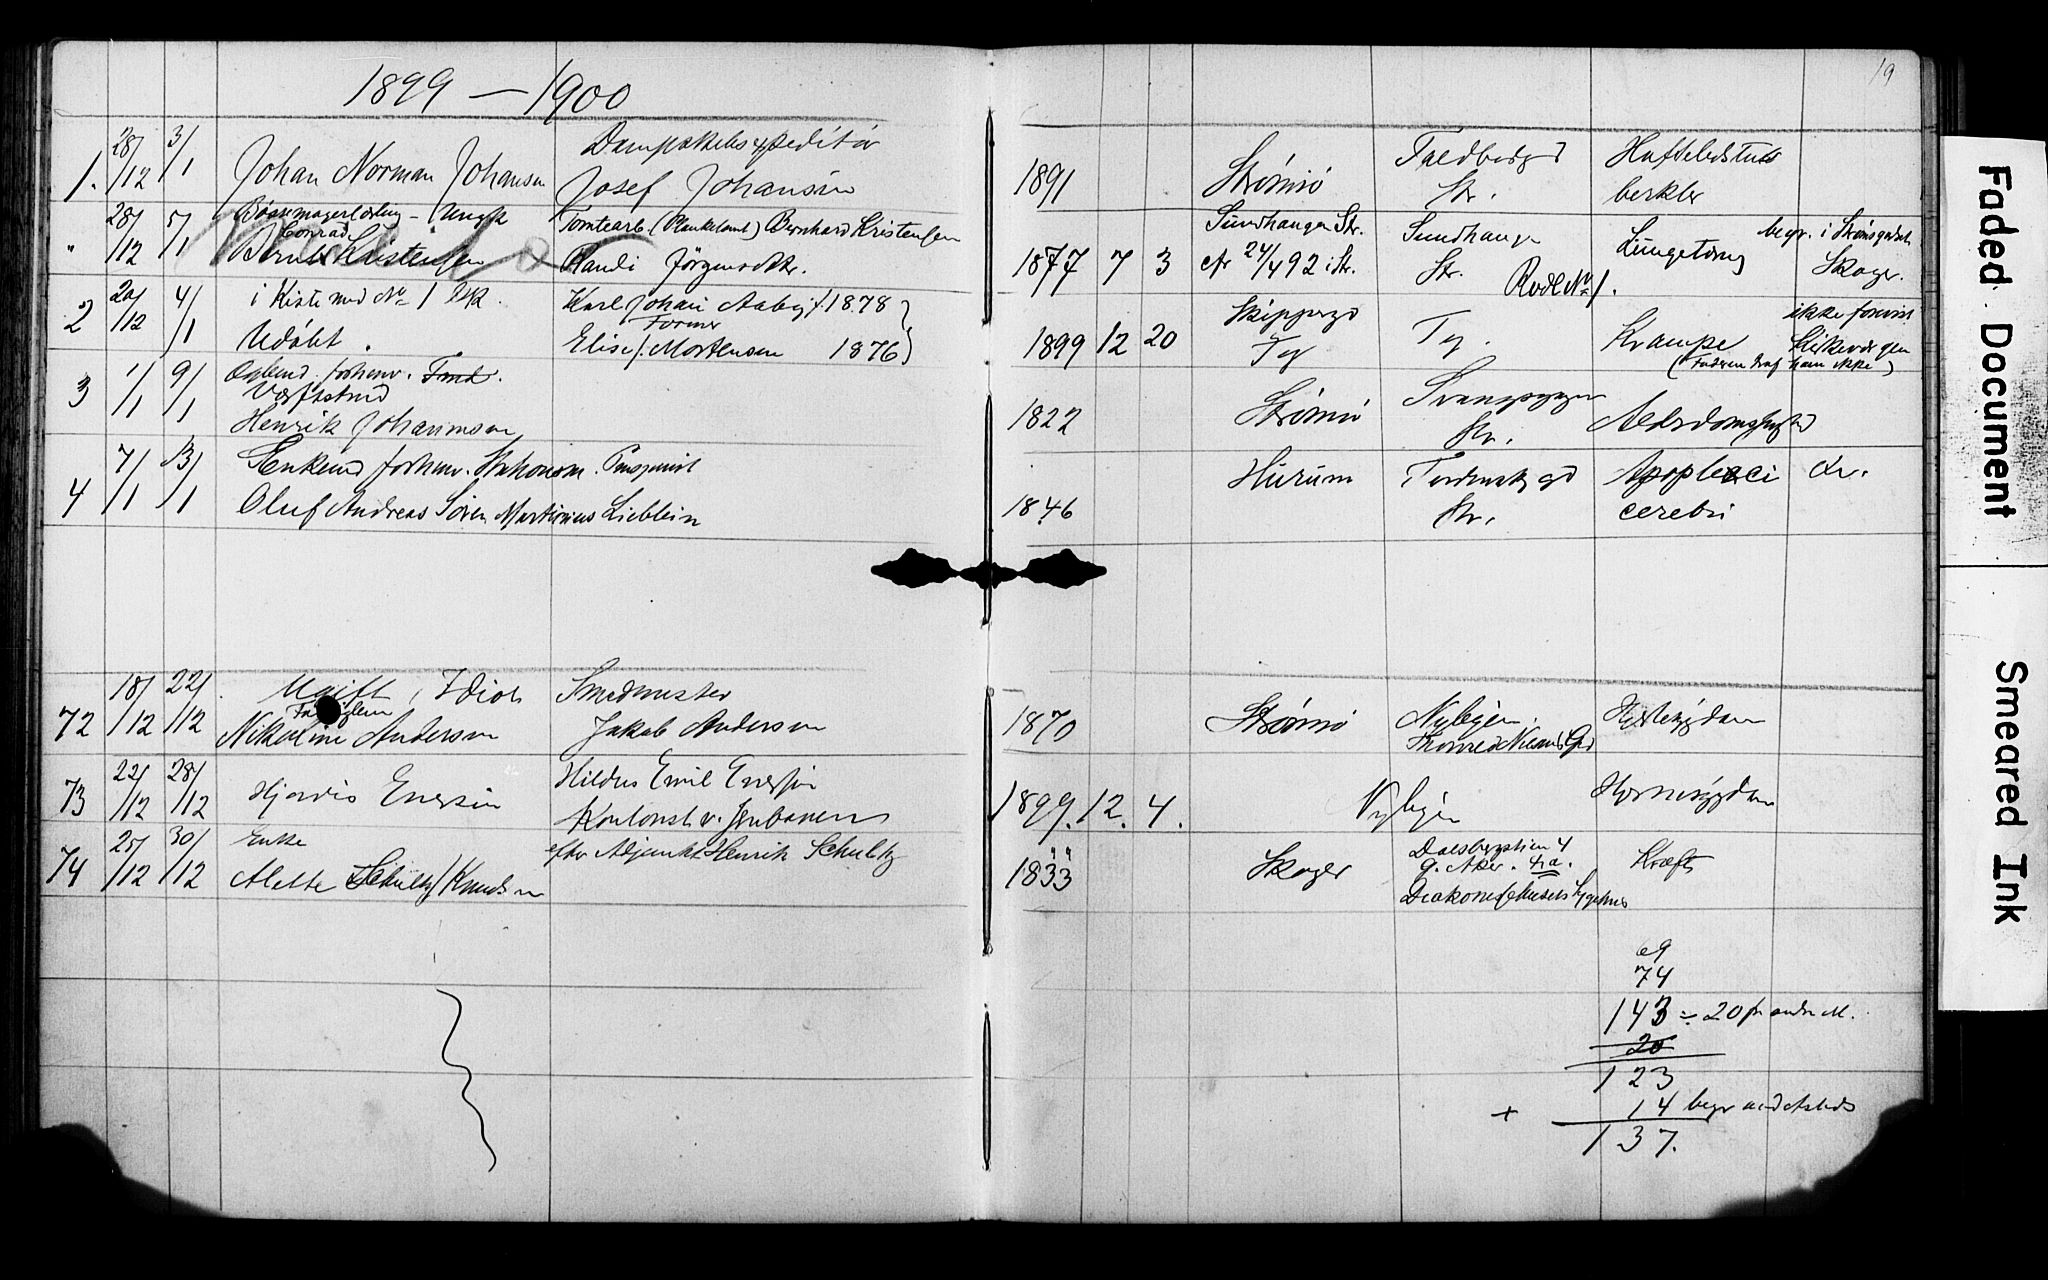 1899 – 1900
19
1. 28/12 3/1 Johan Norman Johansen
Dampskibsexpeditör
Josef Johansen
1891 Strömsö
Str.
Hofteledstub
berkler
" 28/12 5/1 Bössemagerlærling - Ungk
Conrad
Bernt Kristensen
Tomtearb. (Planketomt) Bernhard Kristensen
Randi Jörgensdtr.
1877 7 3 Sundhaugen Str.
cfr 24/4 92 i Str.
Sundhaugen
Str. Rode No 1.
Lungetæring
begr. i Strömsgodset
Skoger.
2 20/12 4/1 i Kiste med No 1
Udöbt.
Karl Johan Aaby f. 1878
Former
Elise f. Mortensen 1876
1899 12 20 Skippergd
Tg
Tg.
Krampe
ikke forevist
Kirkevergen
(Faderen traf ham ikke)
3 1/1 9/1 forhenv.
Værftstmd
Henrik Johannesen
1822 Strömsö
Str.
Alderdomssvaghed
4 7/1 13/1 Enkemd forhenv.
Oluf Andreas Sören Martinius Lieblein
1846 Hurum
Tordenskj gd
Str.
Apoplexi
cerebri
Dr.
72 18/12 22/12 Ugift, Idiot
Nikoline Andersen
Smedmester
Jakob Andersen
1870 Strömsö
Nybyen.
Hjertesygdom
73 22/12 28/12 Hjördis Enersen
Hildus Emil Enersen
Kontorist v. Jernbanen
1899. 12. 4.
Nybyen
Hjernesygdom
74 25/12 30/12 Enke
Alette Schultz f. Knudsen
efter Adjunkt Henrik Schultz
1833 Skoger
4
g. Aker. 4a.
Diakonissehusets Sygehus
Kræft
69
74
143 ÷ 20 fr andre M.
20
123
+ 14 begr andetsteds
137.
Faded Document
Smeared Ink